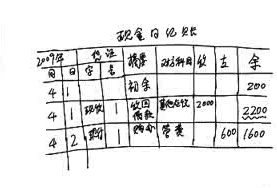 现金日记账
2009年 凭证 摘要 对方科目 收 支 余
月 日 字 号
4 1 初余 200
4 1 现收 1 收回借款 其他应收 2000 2200
4 2 现付 1 购办 管费 600 1600